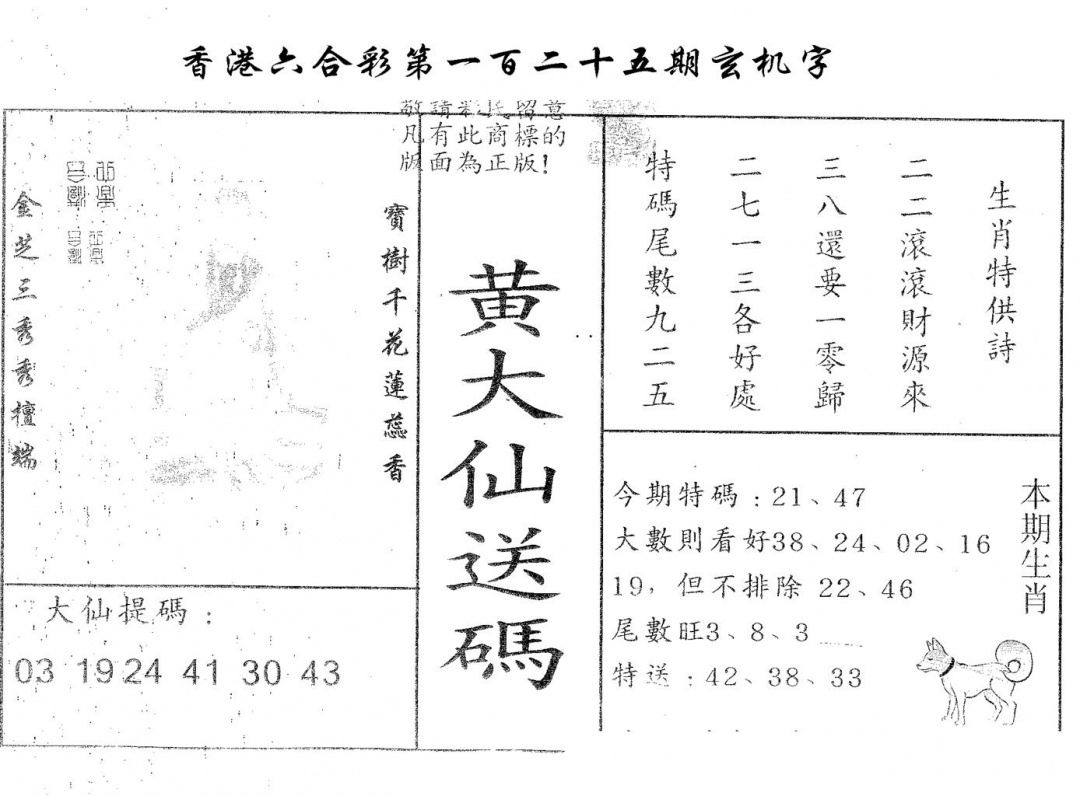 香港六合彩第一百二十五期玄机字
敬請彩民留意
凡有此商標的
版面為正版!
寶樹千花蓮蕊香
金芝三秀秀檀端
黄大仙送碼
生肖特供詩
二二滾滾財源來
三八還要一零歸
二七一三各好處
特碼尾數九二五
今期特碼:21、47
大數則看好38、24、02、16
19,但不排除 22、46
尾數旺3、8、3
特送:42、38、33
本期生肖
大仙提碼:
03 19 24 41 30 43